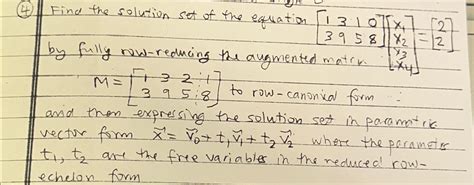 ④ Find the solution set of the equation [1 3 1 0; 3 9 5 8] [x₁; x₂; x₃; x₄] = [2; 2]
by fully row-reducing the augmented matrix
M = [1 3 2 : 1; 3 9 5 : 8] to row-canonical form
and then expressing the solution set in parametric
vector form x⃗ = v⃗₀ + t₁v⃗₁ + t₂v⃗₂ where the parameters
t₁, t₂ are the free variables in the reduced row-
echelon form